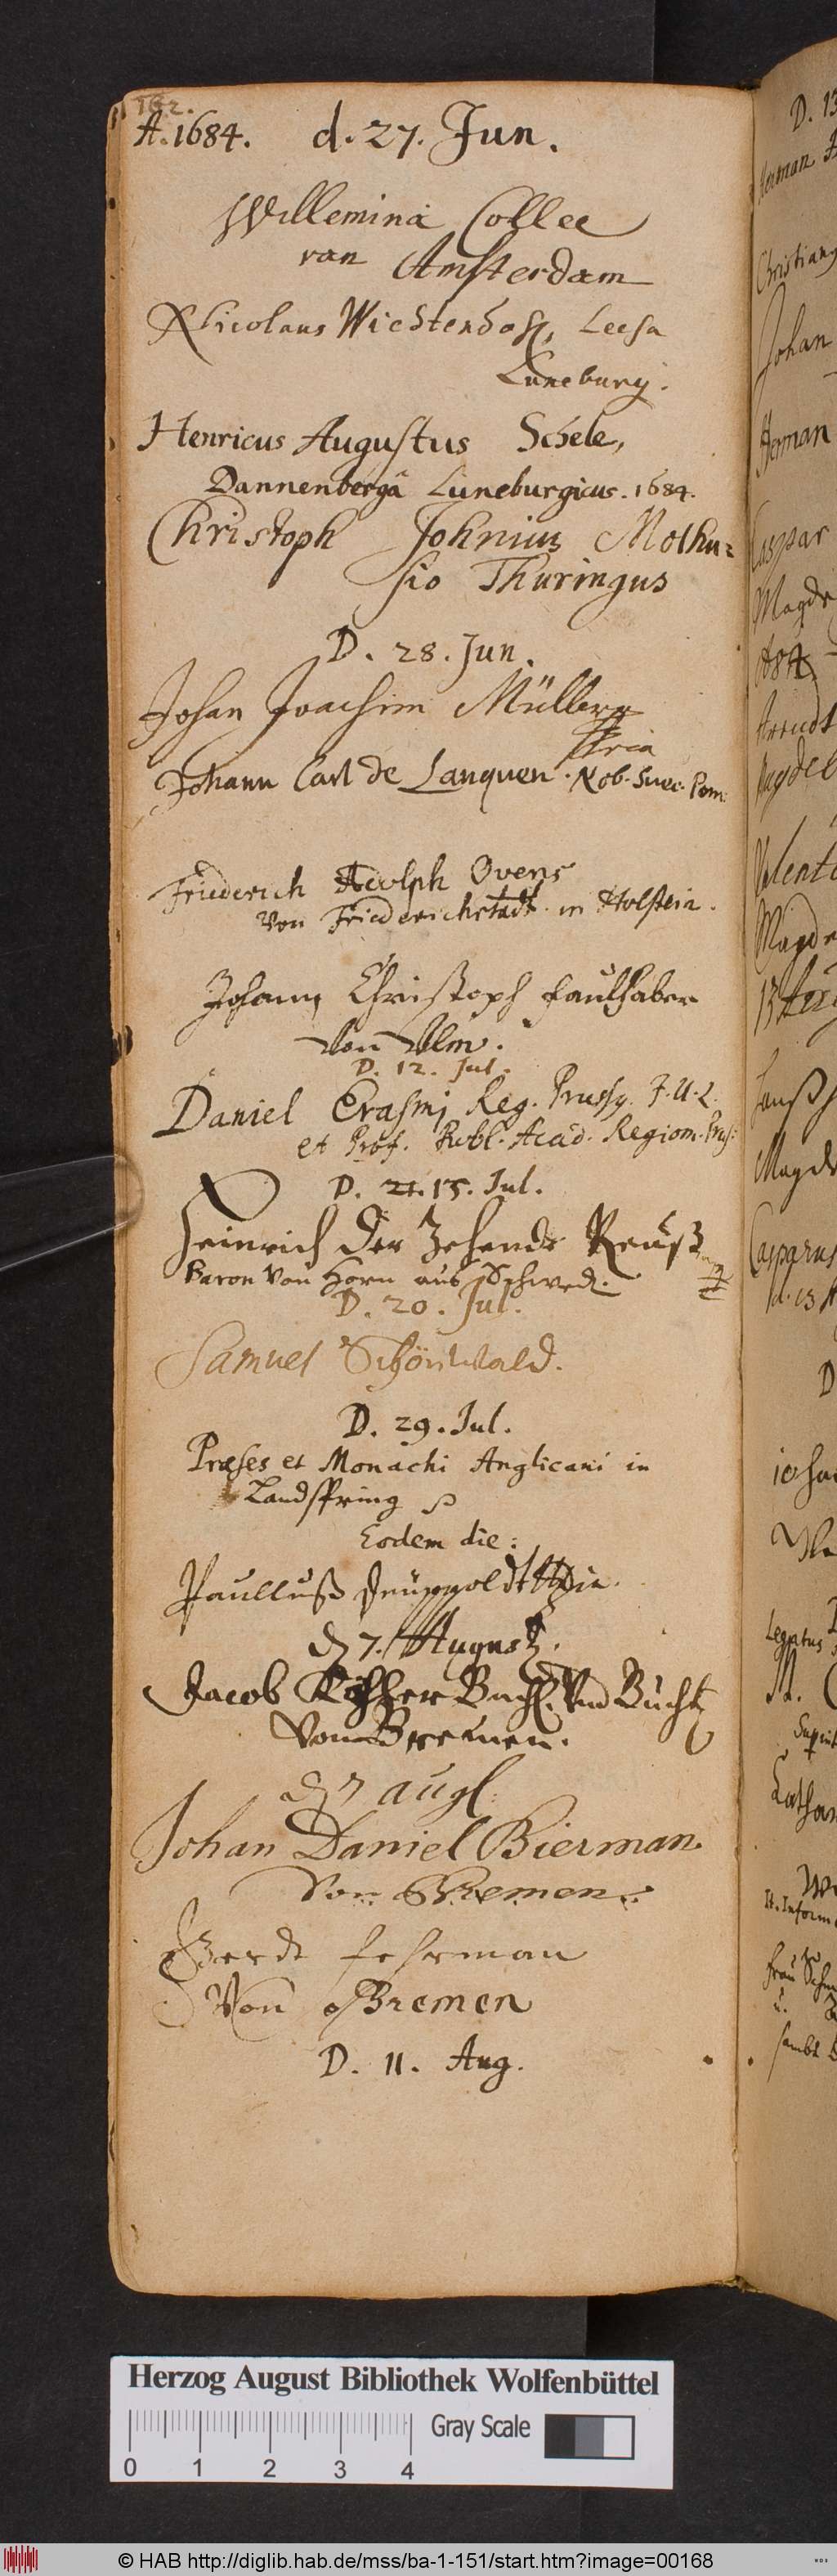 162.
A. 1684. d. 27. Jun.
Willemina Collee
van Amsterdam
Nicolaus Leesa
Luneburg.
Henricus Augustus Schele,
Dannenbergâ Luneburgicus. 1684.
Christoph Johnius Molhu=
sio Thuringus
D. 28. Jun.
Johan Joachim Müller
Johann Carl de Lanquen. Nob. Suec. Pom.
Friederich Adolph Ovens
Von Friederichstadt in Holstein.
Johann Christoph Faulhaber
Von Ulm.
D. 12. Jul.
Daniel Erasmj Reg. Prussq. J. U. L.
et Prof. Publ. Acad. Regiom. Prus:
D. 21. 15. Jul.
Heinrich der Zehende Reuß
Baron Von Horn aus Schwed.
D. 20. Jul.
Samuel Schönwald.
D. 29. Jul.
Præses et Monachi Anglicani in
Landspring
Eodem die:
Paulluß
d 7. August.
Jacob Buchh. Und Bucht
Von Bremen.
d 7 aug.
Johan Daniel Bierman.
Von Bremen.
Gerdt fehrman
Von Bremen
D. 11. Aug.
D. 13
Herman
Christian
Johan
Herman
Caspar
Magde
Arendt
Magdeb
Valenti
Magde
Hanß
Magde
Casparus
D
Legatus
Cathar
frau
u.
sambt
Herzog August Bibliothek Wolfenbüttel
Gray Scale
0 1 2 3 4
© HAB http://diglib.hab.de/mss/ba-1-151/start.htm?image=00168